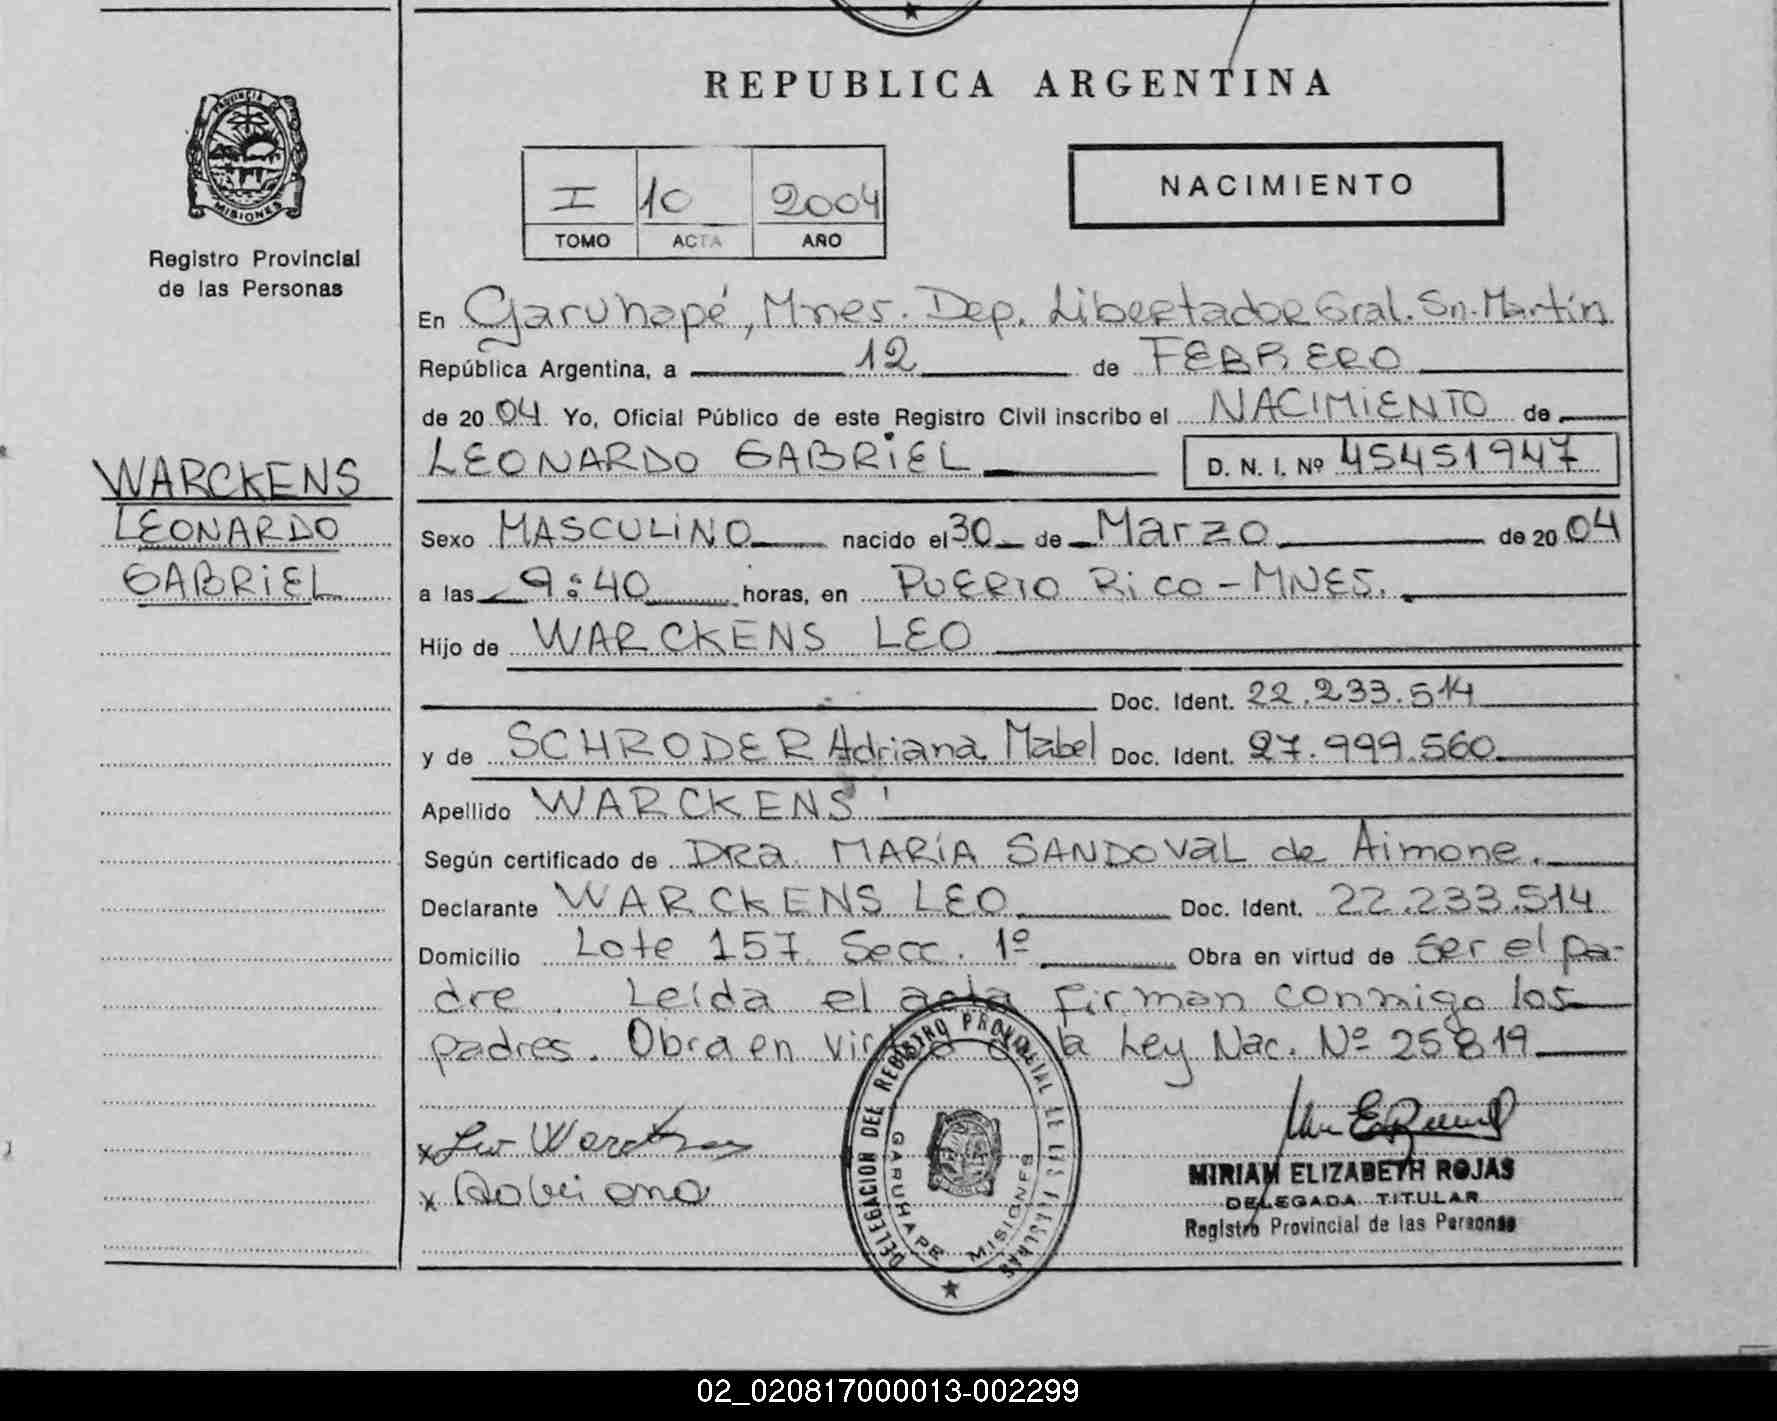 REPUBLICA ARGENTINA
PROVINCIA DE
MISIONES
Registro Provincial
de las Personas
I 10 2004
TOMO ACTA AÑO
NACIMIENTO
En Garuhapé, Mnes. Dep. Libertador Gral. Sn. Martín
República Argentina, a 12 de FEBRERO
de 2004. Yo, Oficial Público de este Registro Civil inscribo el NACIMIENTO de
LEONARDO GABRIEL D. N. I. Nº 45451947
WARCKENS
LEONARDO
GABRIEL
Sexo MASCULINO nacido el 30 de Marzo de 2004
a las 9:40 horas, en PUERTO RICO - MNES.
Hijo de WARCKENS LEO
Doc. Ident. 22.233.514
y de SCHRODER Adriana Mabel Doc. Ident. 27.999.560
Apellido WARCKENS
Según certificado de DRa. MARÍA SANDOVAL de Aimone.
Declarante WARCKENS LEO Doc. Ident. 22.233.514
Domicilio Lote 157 Secc. 1º Obra en virtud de ser el pa-
dre. Leída el acta firman conmigo los
padres. Obra en virtud de la Ley Nac. Nº 25819
x Leo Warckens
x Adriana
DELEGACION DEL REGISTRO PROVINCIAL DE LAS PERSONAS
GARUHAPE MISIONES
MIRIAM ELIZABETH ROJAS
DELEGADA TITULAR
Registro Provincial de las Personas
02_020817000013-002299